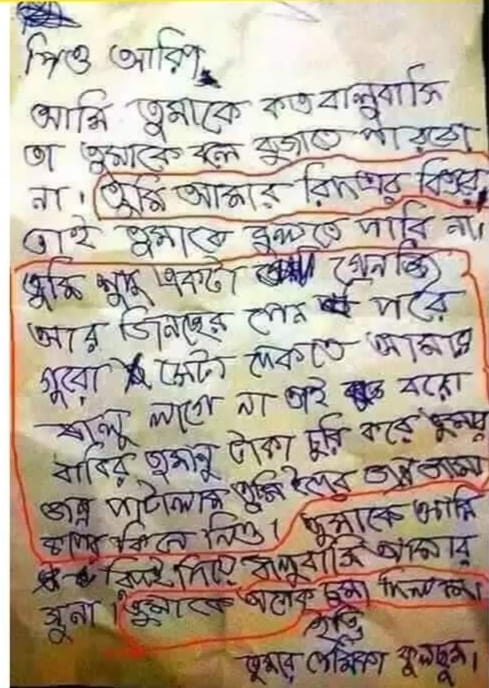 পিও আরিপ,
আমি তুমাকে কত বালুবাসি
তা তুমাকে বলে বুজাতে পারবো
না। তুমি আমার রিদএর বিতর
তাই তুমাকে বুলতে পারি না।
তুমি শুদু একটা গেনজি
আর জিনছের পেন পরে
গুরো সেটা দেকতে আমার
বালু লাগে না তাই বরো
বাবির তুমানু টাকা চুরি করে তুমার
জন্ন পাটালাম তুমি ইদের জন্ন জামা
কিনে নিও। তুমাকে আমি
রিদই দিয়ে বালুবাসি আমার
সুনা। তুমাকে অনেক চুমা দিলাম।
ইতি
তুমার পেমিকা ফুলছুম।